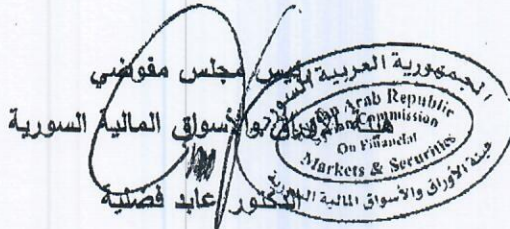 رئيس مجلس مفوضي
هيئة الأوراق والأسواق المالية السورية
الدكتور عابد فضلية
الجمهورية العربية السورية
Syrian Arab Republic
Commission
On Financial
Markets & Securities
هيئة الأوراق والأسواق المالية السورية